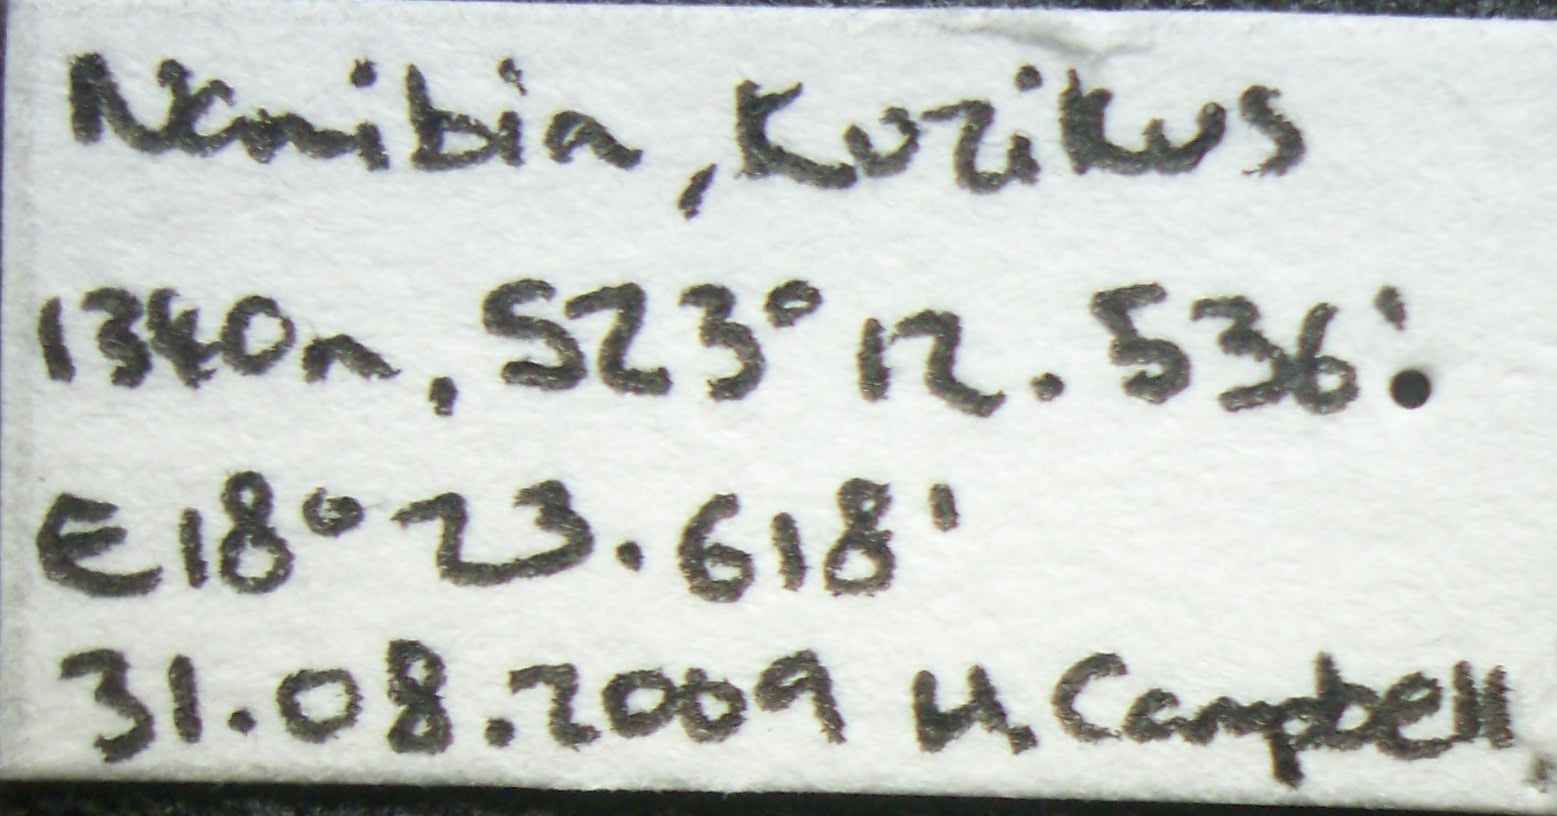 Namibia, Kuzikus
1340m, S23° 12.536'
E18° 23.618'
31.08.2009 H. Campbell